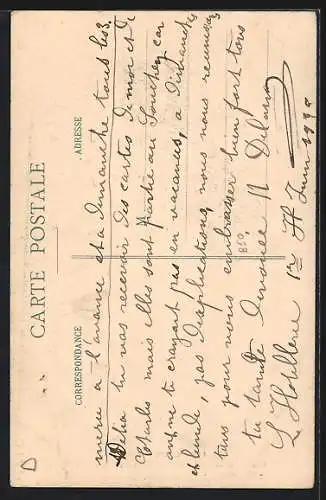 CARTE POSTALE
CORRESPONDANCE
ADRESSE
merci a l'avance et a dimanche tous les 3.
tu vas recevoir des cartes de moi et de
Charles mais elles sont partie au car
on ne te croyant pas en vacances, a dimanche
et lundi, pas d'explications, nous nous reunissons
tous pour vous embrasser bien fort tous
ta tante devouee
L'Hotellerie 1er Juin 19
850
D